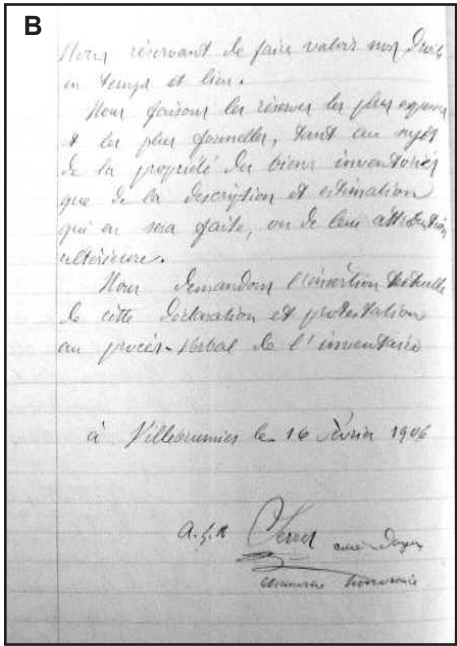 B
Nous réservant de faire valoir nos droits
en temps et lieu.
Nous faisons les réserves les plus expresses
et les plus formelles, tant au sujet
de la propriété des biens inventoriés
que de la description et estimation
qui en sera faite, ou de leur attribution
ultérieure.
Nous demandons l'insertion textuelle
de cette déclaration et protestation
au procès-verbal de l'inventaire
à Villebrumier le 16 février 1906
curé doyen
honoraire